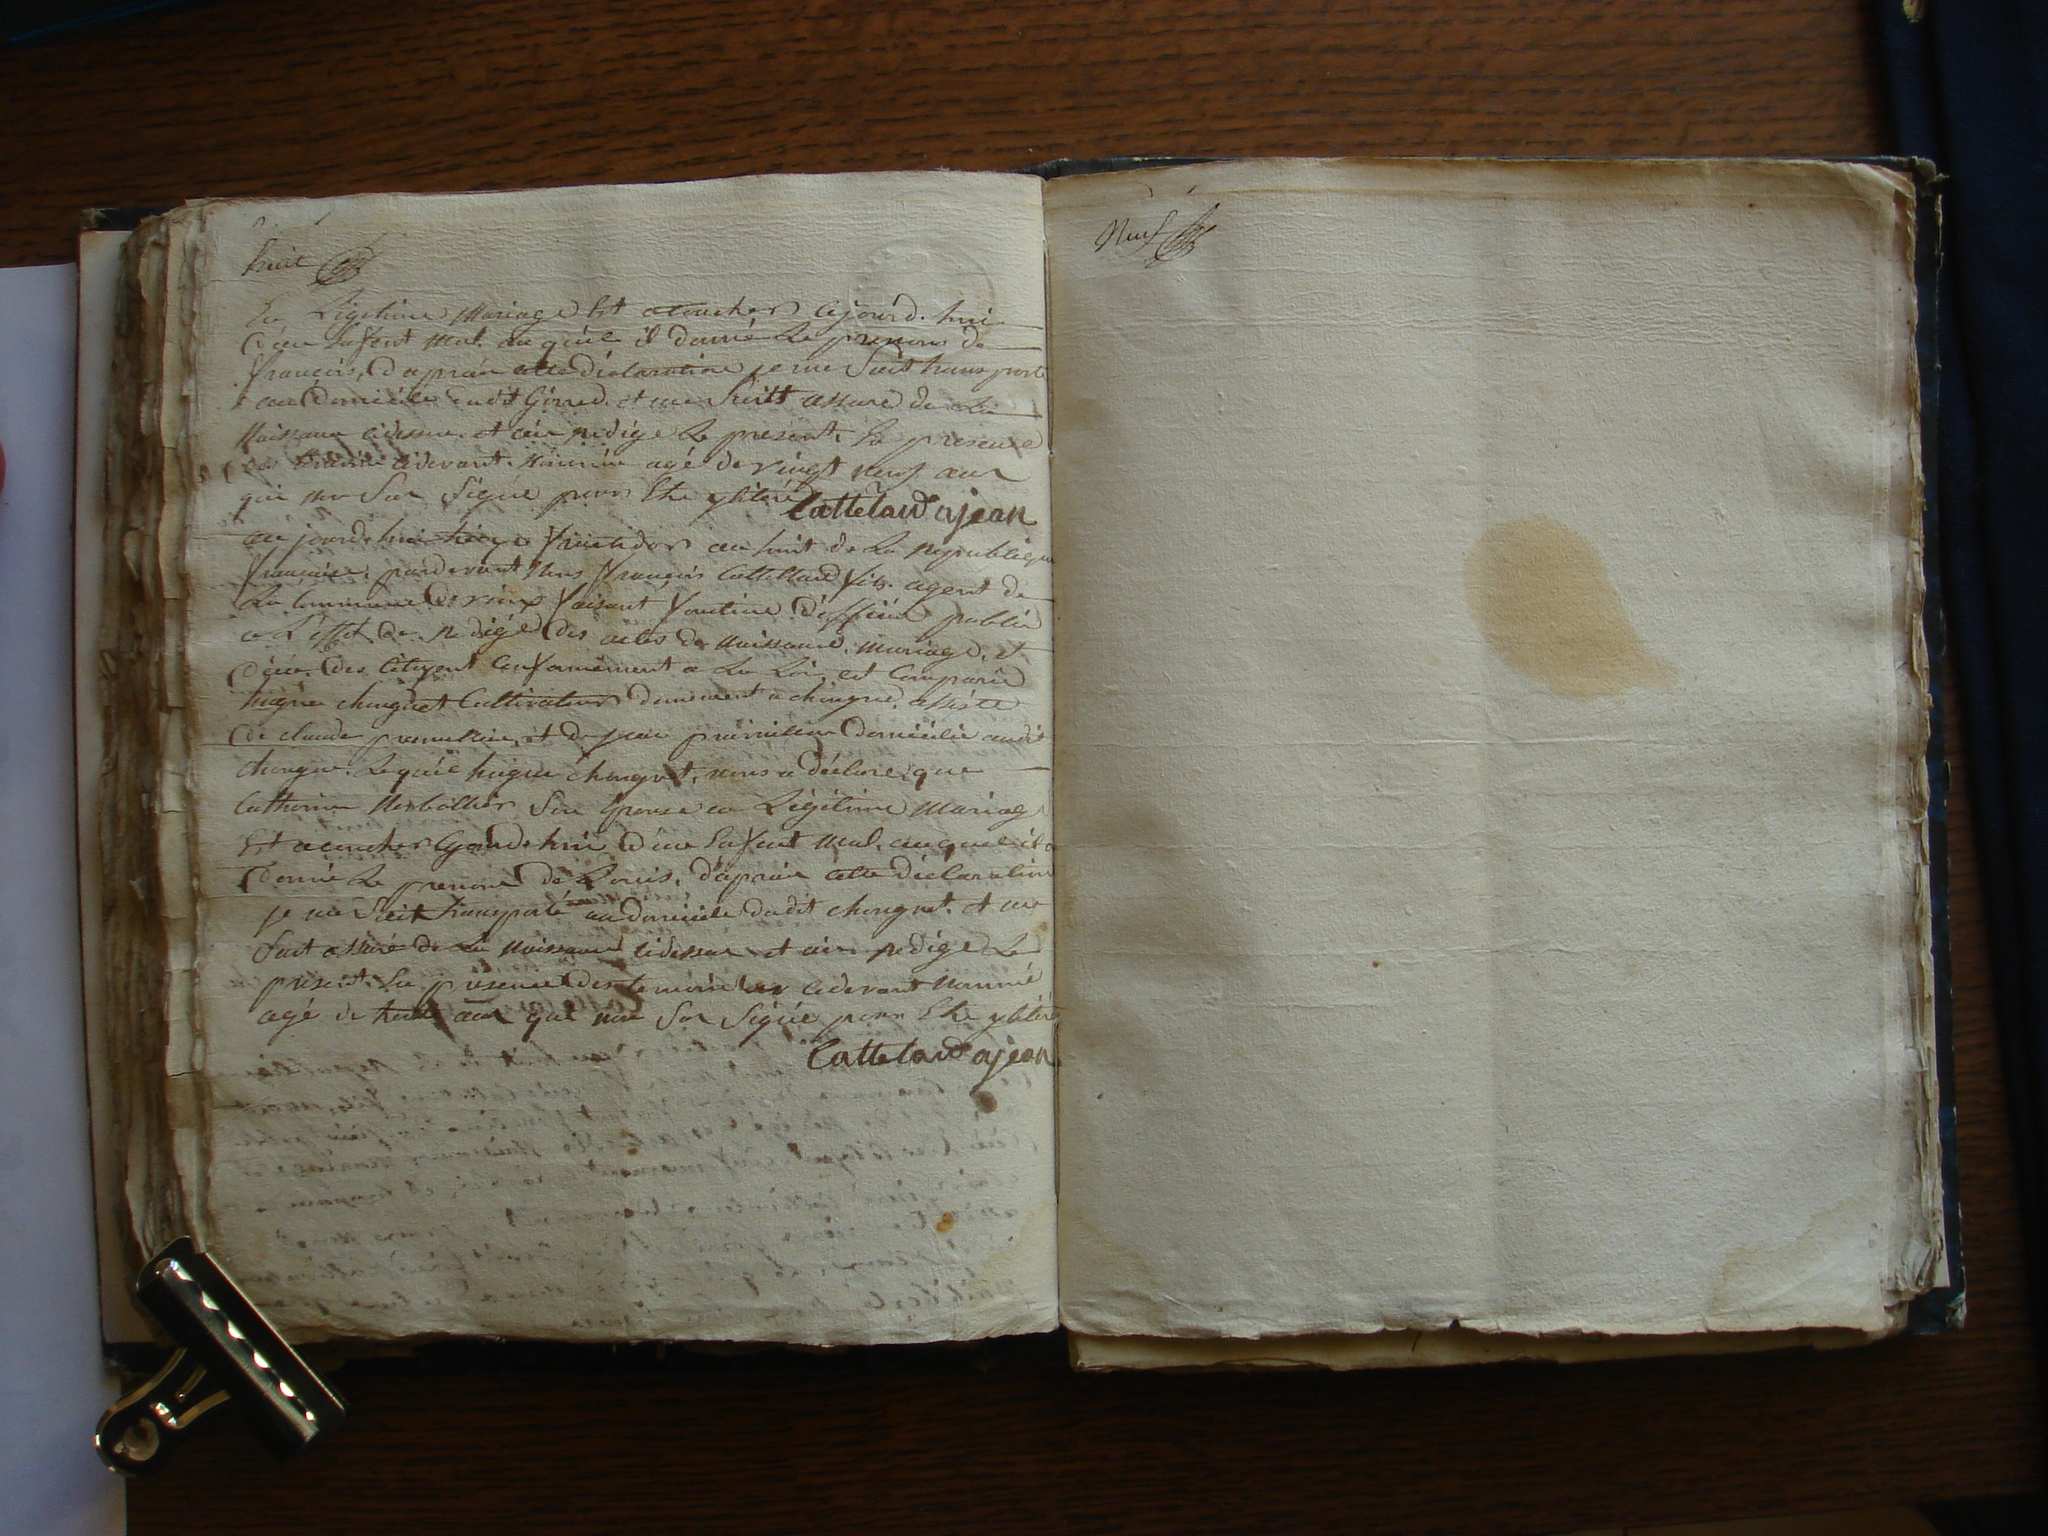 huit
En Légitime Mariage Est acoucher cejourd. hui
D'éun Enfant Mal. au quél il donné Le prenom de
françois, D'aprais cette Déclaration je me Suit transporté
au Domicile dudit et me Suitt assuré de La
Naissance cidessus. et ai redigé Le present. En presence
Des témoin cidevant Nommés agé de vingt neuf ans
qui non Sus Signé pour Etre
Cattelard ajean
aujourd'hui fructidor an huit de La republique
française. pardevant Nous françois Cattellard fils. agent de
La Commune de faisant fonctions d'officié publié
a L'éffet De redigé Des actes de Naissance, Mariage, et
Décè. Des Citoyent Conformément a La Loi, est Comparu
hugue chonguet Cultivateur demeurent a chongue, assisté
De claude et De jean Domicilié audit
chongue. Le quél hugue chonguet, nous a déclaré, que
Catherine Son Epouse en Légitime Mariage
Est acoucher Cejourdehui D'éun Enfant Mal. au quél il a
Donné Le prenom De Louis. D'aprais cette Déclaration
je me Suit transporté au Domicile dudit chonguet. et me
Suit assuré De La Naissance cidessus et ai redigé Le
présent. En présence Des temoins cidevant Nommé
agé de trente ans qui non Sus Signé pour Etre
Cattelard ajean
Neuf